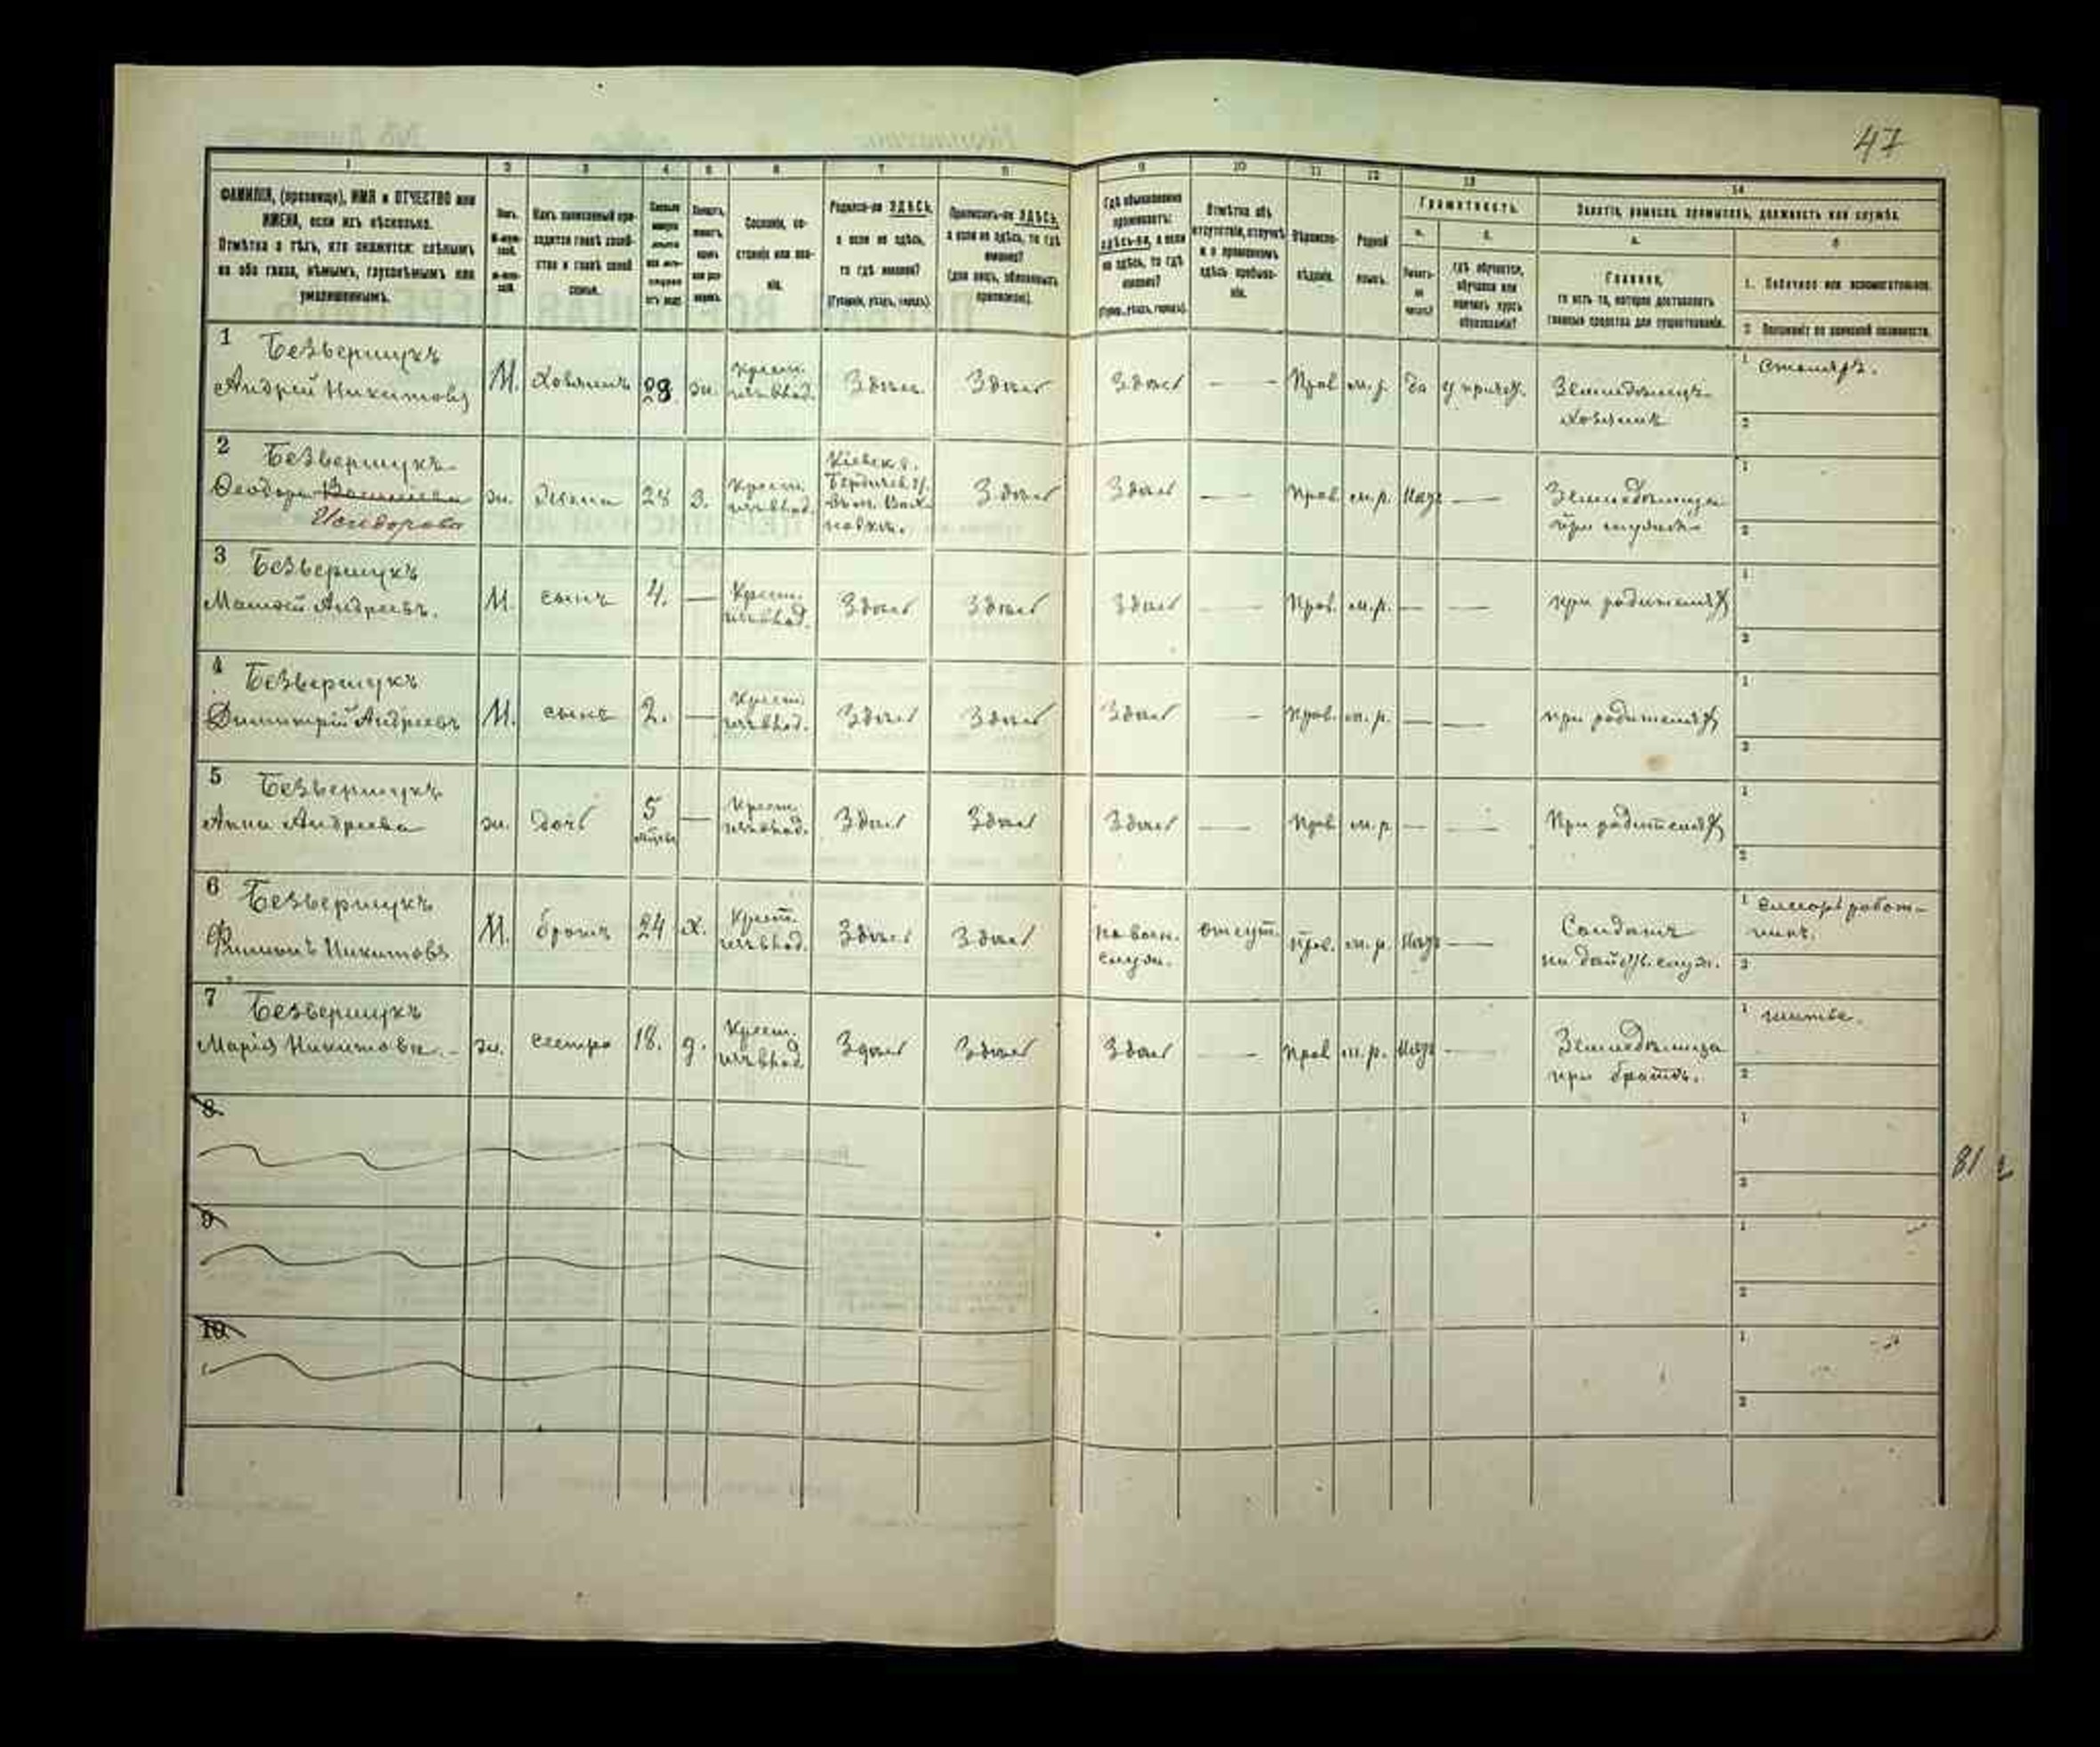 47
1 2 3 4 5 6 7 8 9 10 11 12 13 14
ФАМИЛІЯ, (прозвище), ИМЯ и ОТЧЕСТВО или
ИМЕНА, если ихъ нѣсколько.
Отмѣтка о тѣхъ, кто окажется: слѣпымъ
на оба глаза, нѣмымъ, глухонѣмымъ или
умалишеннымъ.
Полъ.
Какъ записанный при-
ходится главѣ хозяй-
ства и главѣ своей
семьи.
Сословіе, со-
стояніе или зва-
ніе.
Родился-ли ЗДѢСЬ,
а если не здѣсь,
то гдѣ именно?
(Губернія, уѣздъ, городъ).
Приписанъ-ли ЗДѢСЬ,
а если не здѣсь, то гдѣ
именно?
(для лицъ, обязанныхъ
припискою).
Гдѣ обыкновенно
проживаетъ:
здѣсь-ли, а если
не здѣсь, то гдѣ
именно?
(Губер., уѣздъ, городъ).
Отмѣтка объ
отсутствіи, отлучкѣ
и о временномъ
здѣсь пребыва-
ніи.
Вѣроиспо-
вѣданіе.
Родной
языкъ.
Грамотность.
а.
Умѣетъ-
ли
читать?
б.
гдѣ обучается,
обучался или
кончилъ курсъ
образованія?
Занятіе, ремесло, промыселъ, должность или служба.
а.
Главное,
то есть то, которое доставляетъ
главныя средства для существованія.
б
1. Побочное или вспомогательное.
2. Положеніе по воинской повинности.
1 Безвершукъ
Андрей Никитовъ
М. хозяинъ 28 ж. крест. изъ влад. Здѣсь Здѣсь Здѣсь — Прав м.р. да
Земледѣлецъ
хозяинъ
1 столяръ.
2
2 Безвершукъ
Ѳеодора Васильева
Исидорова
ж. жена 28 З. крест. изъ влад.
Кіевск. г.
Бердичев. у.
Здѣсь Здѣсь — Прав м.р. —
Земледѣлица
при мужѣ
1
2
3 Безвершукъ
М. сынъ 4. — Крест. изъ влад. Здѣсь Здѣсь Здѣсь — Прав. м.р. — — при родителях
1
2
4 Безвершукъ
Димитрій Андреевъ
М. сынъ 2. — Крест. изъ влад. Здѣсь Здѣсь Здѣсь — Прав. м.р. — — при родителях
1
2
5 Безвершукъ
Анна Андреева
ж. дочь 5 — Крест. изъ влад. Здѣсь Здѣсь Здѣсь — Прав м.р — — При родителях
1
2
6 Безвершукъ
Филипъ Никитовъ
М. братъ 24 х. Крест. изъ влад. Здѣсь Здѣсь
на воен.
служ.
отсут. Прав. м.р. —
Солдатъ
на дѣйст. служ.
1
2
7 Безвершукъ
Марія Никитова.
ж. сестра 18. д. Крест. изъ влад Здѣсь Здѣсь Здѣсь — Прав м.р. —
Земледѣлица
при братѣ.
1 шитье.
2
8.
1
2
81
9
1
2
10.
1
2